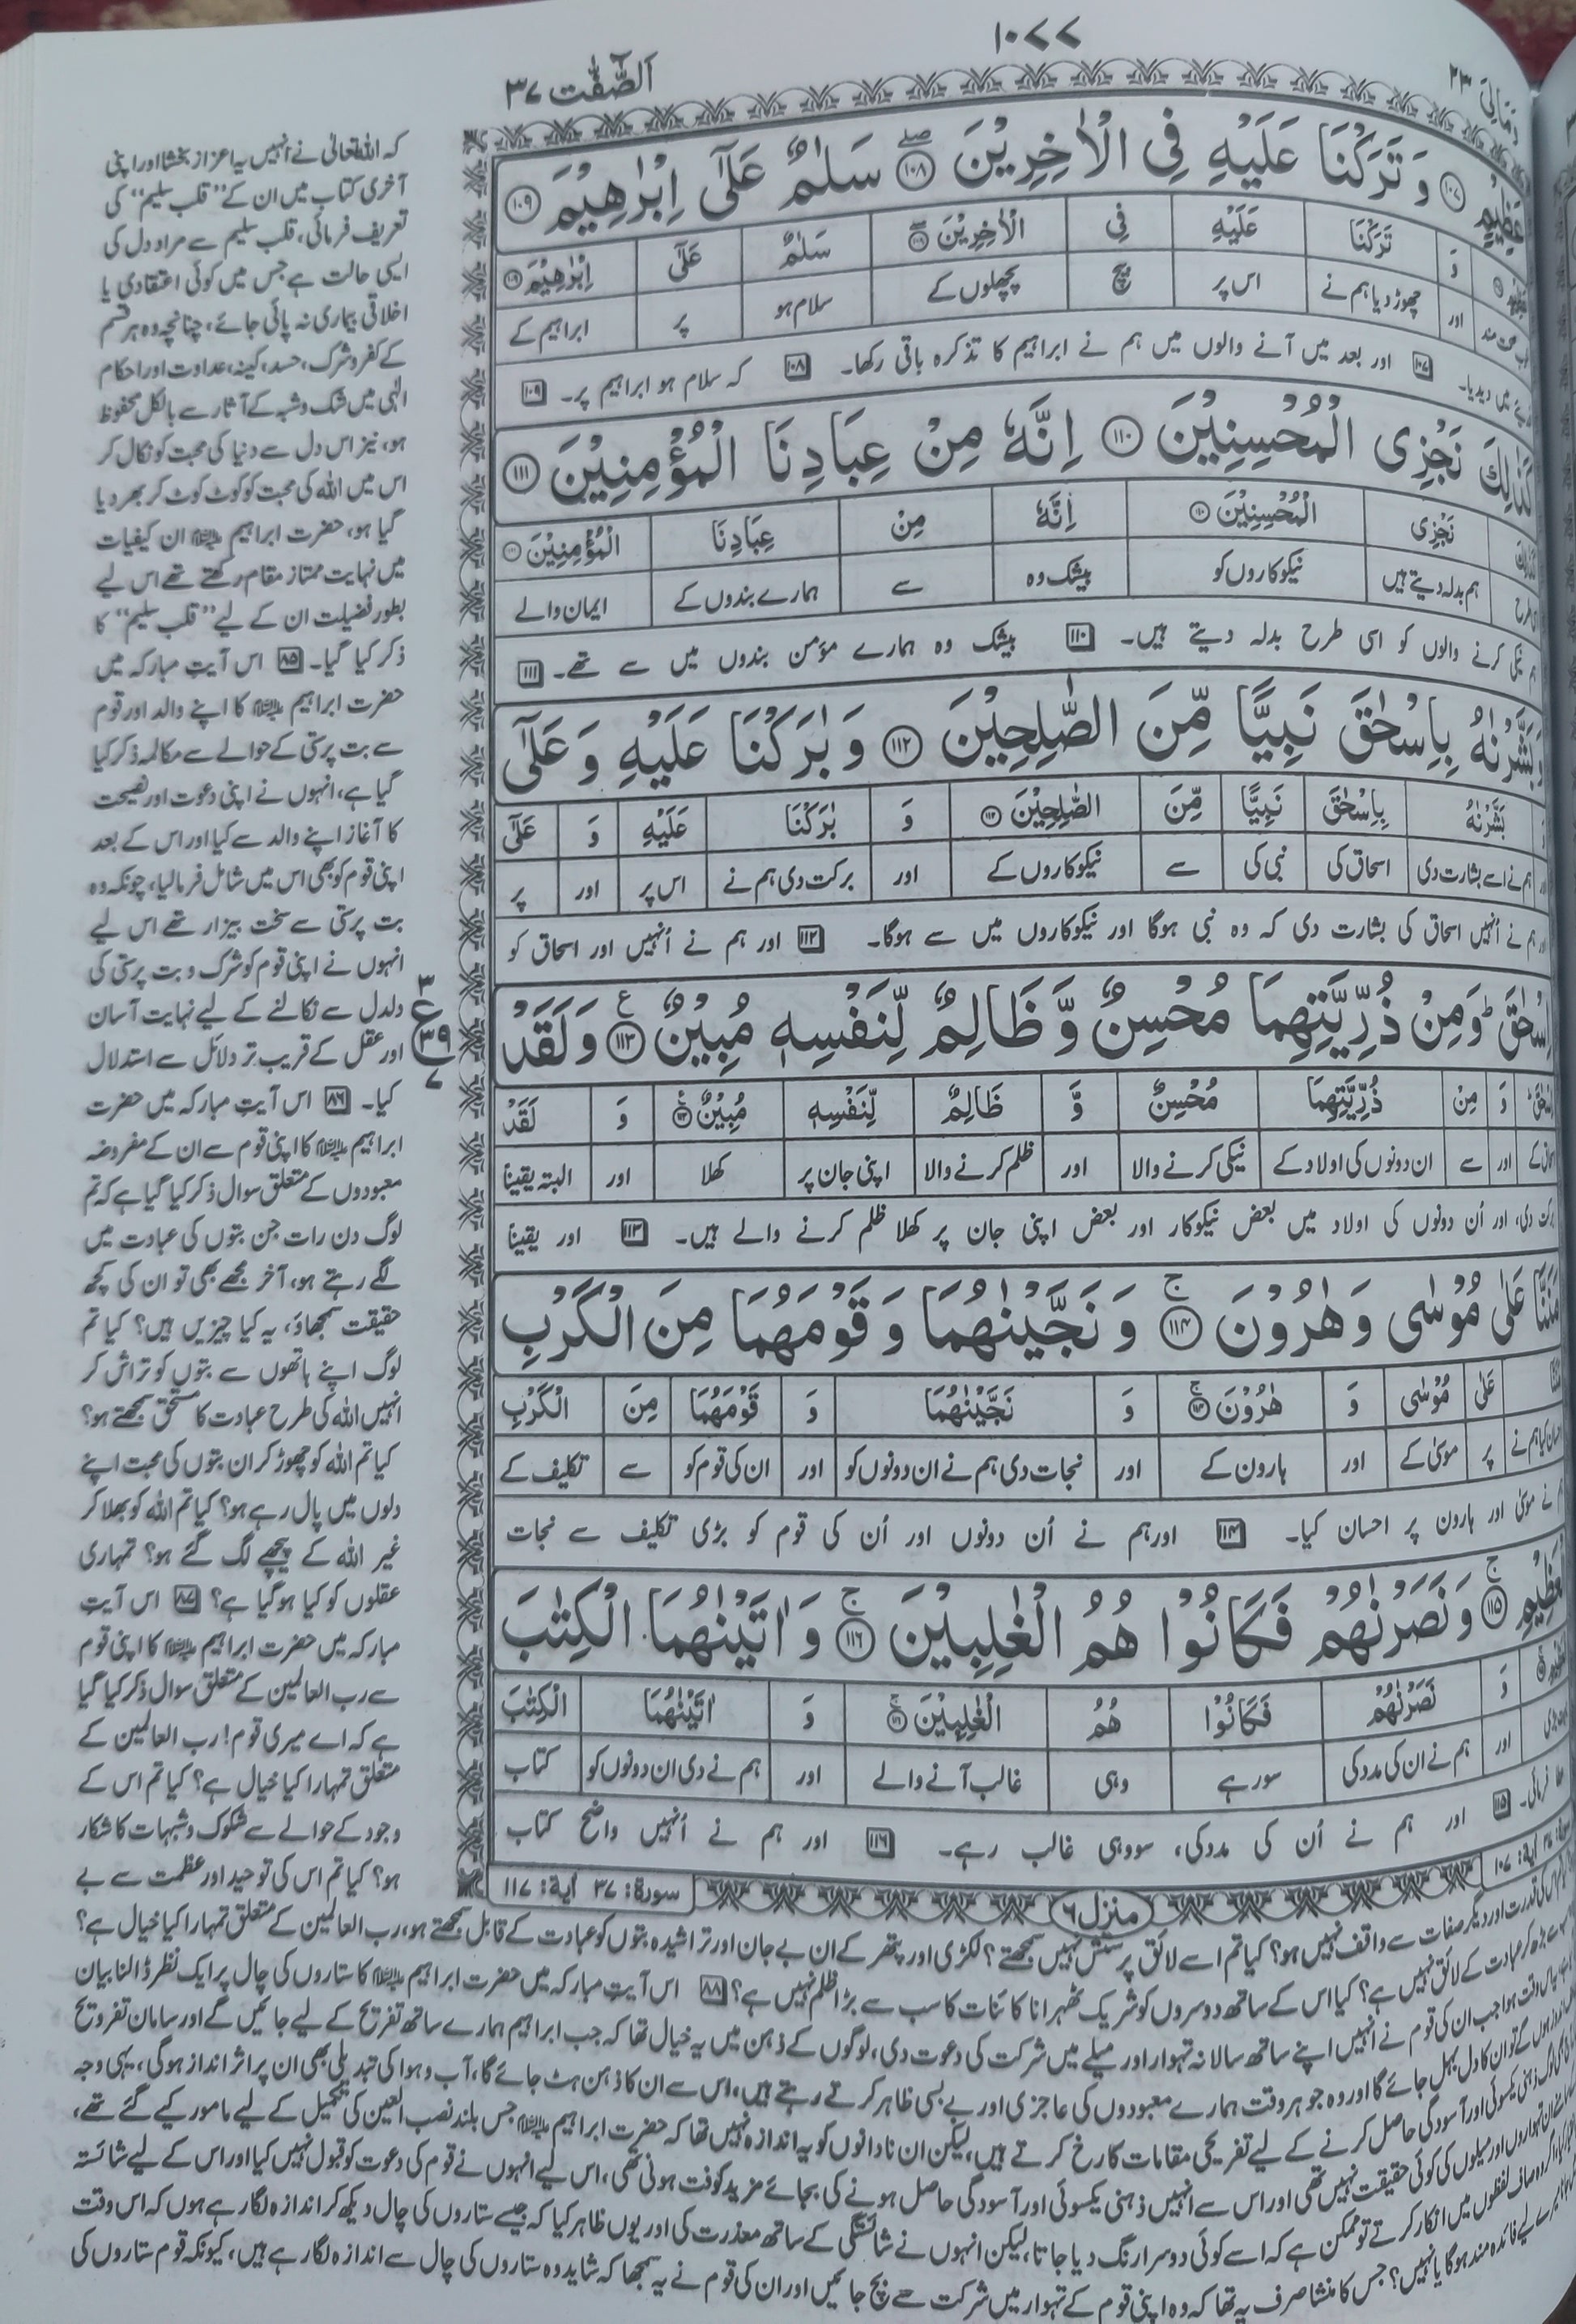 ١٠٧٧
وَمَالِیَ ٢٣
اَلصّٰٓفّٰت ٣٧
عَظِيْمٍ ۝١٠٧ وَتَرَكْنَا عَلَيْهِ فِي الْاٰخِرِيْنَ ۝١٠٨ سَلٰمٌ عَلٰٓى اِبْرٰهِيْمَ ۝١٠٩
وَ تَرَكْنَا عَلَيْهِ فِي الْاٰخِرِيْنَ ۝١٠٨ سَلٰمٌ عَلٰٓى اِبْرٰهِيْمَ ۝١٠٩
اور چھوڑ دیا ہم نے اس پر بیچ پچھلوں کے سلام ہو پر ابراہیم کے
میں دیدیا۔ ١٠٧ اور بعد میں آنے والوں میں ہم نے ابراہیم کا تذکرہ باقی رکھا۔ ١٠٨ کہ سلام ہو ابراہیم پر۔ ١٠٩
كَذٰلِكَ نَجْزِي الْمُحْسِنِيْنَ ۝١١٠ اِنَّهٗ مِنْ عِبَادِنَا الْمُؤْمِنِيْنَ ۝١١١
نَجْزِي الْمُحْسِنِيْنَ ۝١١٠ اِنَّهٗ مِنْ عِبَادِنَا الْمُؤْمِنِيْنَ ۝١١١
ہم بدلہ دیتے ہیں نیکوکاروں کو بیشک وہ سے ہمارے بندوں کے ایمان والے
ہم نیکی کرنے والوں کو اسی طرح بدلہ دیتے ہیں۔ ١١٠ بیشک وہ ہمارے مؤمن بندوں میں سے تھے۔ ١١١
بَشَّرْنٰهُ بِاِسْحٰقَ نَبِيًّا مِّنَ الصّٰلِحِيْنَ ۝١١٢ وَبٰرَكْنَا عَلَيْهِ وَعَلٰٓى
بَشَّرْنٰهُ بِاِسْحٰقَ نَبِيًّا مِّنَ الصّٰلِحِيْنَ ۝١١٢ وَ بٰرَكْنَا عَلَيْهِ وَ عَلٰٓى
ہم نے اسے بشارت دی اسحاق کی نبی کی سے نیکوکاروں کے اور برکت دی ہم نے اس پر اور پر
ہم نے اُنہیں اسحاق کی بشارت دی کہ وہ نبی ہوگا اور نیکوکاروں میں سے ہوگا۔ ١١٢ اور ہم نے اُنہیں اور اسحاق کو
اِسْحٰقَ ؕ وَمِنْ ذُرِّيَّتِهِمَا مُحْسِنٌ وَّظَالِمٌ لِّنَفْسِهٖ مُبِيْنٌ ۝١١٣ وَلَقَدْ
اِسْحٰقَ وَ مِنْ ذُرِّيَّتِهِمَا مُحْسِنٌ وَّ ظَالِمٌ لِّنَفْسِهٖ مُبِيْنٌ ۝١١٣ وَ لَقَدْ
اور سے ان دونوں کی اولاد کے نیکی کرنے والا اور ظلم کرنے والا اپنی جان پر کھلا اور البتہ یقیناً
برکت دی، اور اُن دونوں کی اولاد میں بعض نیکوکار اور بعض اپنی جان پر کھلا ظلم کرنے والے ہیں۔ ١١٣ اور یقیناً
مَنَنَّا عَلٰى مُوْسٰى وَهٰرُوْنَ ۝١١٤ وَنَجَّيْنٰهُمَا وَقَوْمَهُمَا مِنَ الْكَرْبِ
عَلٰى مُوْسٰى وَ هٰرُوْنَ ۝١١٤ وَ نَجَّيْنٰهُمَا وَ قَوْمَهُمَا مِنَ الْكَرْبِ
احسان کیا ہم نے پر موسیٰ کے اور ہارون کے اور نجات دی ہم نے ان دونوں کو اور ان کی قوم کو سے تکلیف کے
نے موسیٰ اور ہارون پر احسان کیا۔ ١١٤ اور ہم نے اُن دونوں اور اُن کی قوم کو بڑی تکلیف سے نجات
الْعَظِيْمِ ۝١١٥ وَنَصَرْنٰهُمْ فَكَانُوْا هُمُ الْغٰلِبِيْنَ ۝١١٦ وَاٰتَيْنٰهُمَا الْكِتٰبَ
وَ نَصَرْنٰهُمْ فَكَانُوْا هُمُ الْغٰلِبِيْنَ ۝١١٦ وَ اٰتَيْنٰهُمَا الْكِتٰبَ
اور ہم نے ان کی مدد کی سو رہے وہی غالب آنے والے اور ہم نے دی ان دونوں کو کتاب
عطا فرمائی۔ ١١٥ اور ہم نے اُن کی مدد کی، سو وہی غالب رہے۔ ١١٦ اور ہم نے اُنہیں واضح کتاب
منزل ٦
سورة: ٣٧ اٰیة: ١١٧
ع ٣ ٣٩ ٧
کہ اللہ تعالیٰ نے انہیں یہ اعزاز بخشا اور اپنی
آخری کتاب میں ان کے ”قلب سلیم“ کی
تعریف فرمائی، قلب سلیم سے مراد دل کی
ایسی حالت ہے جس میں کوئی اعتقادی یا
اخلاقی بیماری نہ پائی جائے، چنانچہ وہ ہر قسم
کے کفر و شرک، حسد، کینہ، عداوت اور احکام
الٰہی میں شک و شبہ کے آثار سے بالکل محفوظ
ہو، نیز اس دل سے دنیا کی محبت کو نکال کر
اس میں اللہ کی محبت کو کوٹ کوٹ کر بھر دیا
گیا ہو، حضرت ابراہیم علیہ السلام ان کیفیات
میں نہایت ممتاز مقام رکھتے تھے اس لیے
بطور فضیلت ان کے لیے ”قلب سلیم“ کا
ذکر کیا گیا۔ ٨٥ اس آیت مبارکہ میں
حضرت ابراہیم علیہ السلام کا اپنے والد اور قوم
سے بت پرستی کے حوالے سے مکالمہ ذکر کیا
گیا ہے، انہوں نے اپنی دعوت اور نصیحت
کا آغاز اپنے والد سے کیا اور اس کے بعد
اپنی قوم کو بھی اس میں شامل فرمالیا، چونکہ وہ
بت پرستی سے سخت بیزار تھے اس لیے
انہوں نے اپنی قوم کو شرک و بت پرستی کی
دلدل سے نکالنے کے لیے نہایت آسان
اور عقل کے قریب تر دلائل سے استدلال
کیا۔ ٨٦ اس آیت مبارکہ میں حضرت
ابراہیم علیہ السلام کا اپنی قوم سے ان کے مفروضہ
معبودوں کے متعلق سوال ذکر کیا گیا ہے کہ تم
لوگ دن رات جن بتوں کی عبادت میں
لگے رہتے ہو، آخر مجھے بھی تو ان کی کچھ
حقیقت سمجھاؤ، یہ کیا چیزیں ہیں؟ کیا تم
لوگ اپنے ہاتھوں سے بتوں کو تراش کر
انہیں اللہ کی طرح عبادت کا مستحق سمجھتے ہو؟
کیا تم اللہ کو چھوڑ کر ان بتوں کی محبت اپنے
دلوں میں پال رہے ہو؟ کیا تم اللہ کو بھلا کر
غیر اللہ کے پیچھے لگ گئے ہو؟ تمہاری
عقلوں کو کیا ہو گیا ہے؟ ٨٧ اس آیت
مبارکہ میں حضرت ابراہیم علیہ السلام کا اپنی قوم
سے رب العالمین کے متعلق سوال ذکر کیا گیا
ہے کہ اے میری قوم! رب العالمین کے
متعلق تمہارا کیا خیال ہے؟ کیا تم اس کے
وجود کے حوالے سے شکوک و شبہات کا شکار
ہو؟ کیا تم اس کی توحید اور عظمت سے بے
قدرت اور دیگر صفات سے واقف نہیں ہو؟ کیا تم اسے لائق پرستش نہیں سمجھتے؟ لکڑی اور پتھر کے ان بے جان اور تراشیدہ بتوں کو عبادت کے قابل سمجھتے ہو، رب العالمین کے متعلق تمہارا کیا خیال ہے؟
عبادت کے لائق نہیں ہے؟ کیا اس کے ساتھ دوسروں کو شریک ٹھہرانا کائنات کا سب سے بڑا ظلم نہیں ہے؟ ٨٨ اس آیت مبارکہ میں حضرت ابراہیم علیہ السلام کا ستاروں کی چال پر ایک نظر ڈالنا بیان
جب ان کی قوم نے انہیں اپنے ساتھ سالانہ تہوار اور میلے میں شرکت کی دعوت دی، لوگوں کے ذہن میں یہ خیال تھا کہ جب ابراہیم ہمارے ساتھ تفریح کے لیے جائیں گے اور سامان تفریح
تو ان کا دل بہل جائے گا اور وہ جو ہر وقت ہمارے معبودوں کی عاجزی اور بے بسی ظاہر کرتے رہتے ہیں، اس سے ان کا ذہن ہٹ جائے گا، آب و ہوا کی تبدیلی بھی ان پر اثر انداز ہوگی، یہی وجہ
ذہنی یکسوئی اور آسودگی حاصل کرنے کے لیے تفریحی مقامات کا رخ کرتے ہیں، لیکن ان نادانوں کو یہ اندازہ نہیں تھا کہ حضرت ابراہیم علیہ السلام جس بلند نصب العین کی تکمیل کے لیے مامور کیے گئے تھے،
تہواروں اور میلوں کی کوئی حقیقت نہیں تھی اور اس سے انہیں ذہنی یکسوئی اور آسودگی حاصل ہونے کی بجائے مزید کوفت ہونی تھی، اس لیے انہوں نے قوم کی دعوت کو قبول نہیں کیا اور اس کے لیے شائستہ
صاف لفظوں میں انکار کرتے تو ممکن ہے کہ اسے کوئی دوسرا رنگ دیا جاتا، لیکن انہوں نے شائستگی کے ساتھ معذرت کی اور یوں ظاہر کیا کہ جیسے ستاروں کی چال دیکھ کر اندازہ لگا رہے ہوں کہ اس وقت
لیے فائدہ مند ہوگا یا نہیں؟ جس کا منشا صرف یہ تھا کہ وہ اپنی قوم کے تہوار میں شرکت سے بچ جائیں اور ان کی قوم نے یہ سمجھا کہ شاید وہ ستاروں کی چال سے اندازہ لگا رہے ہیں، کیونکہ قوم ستاروں کی